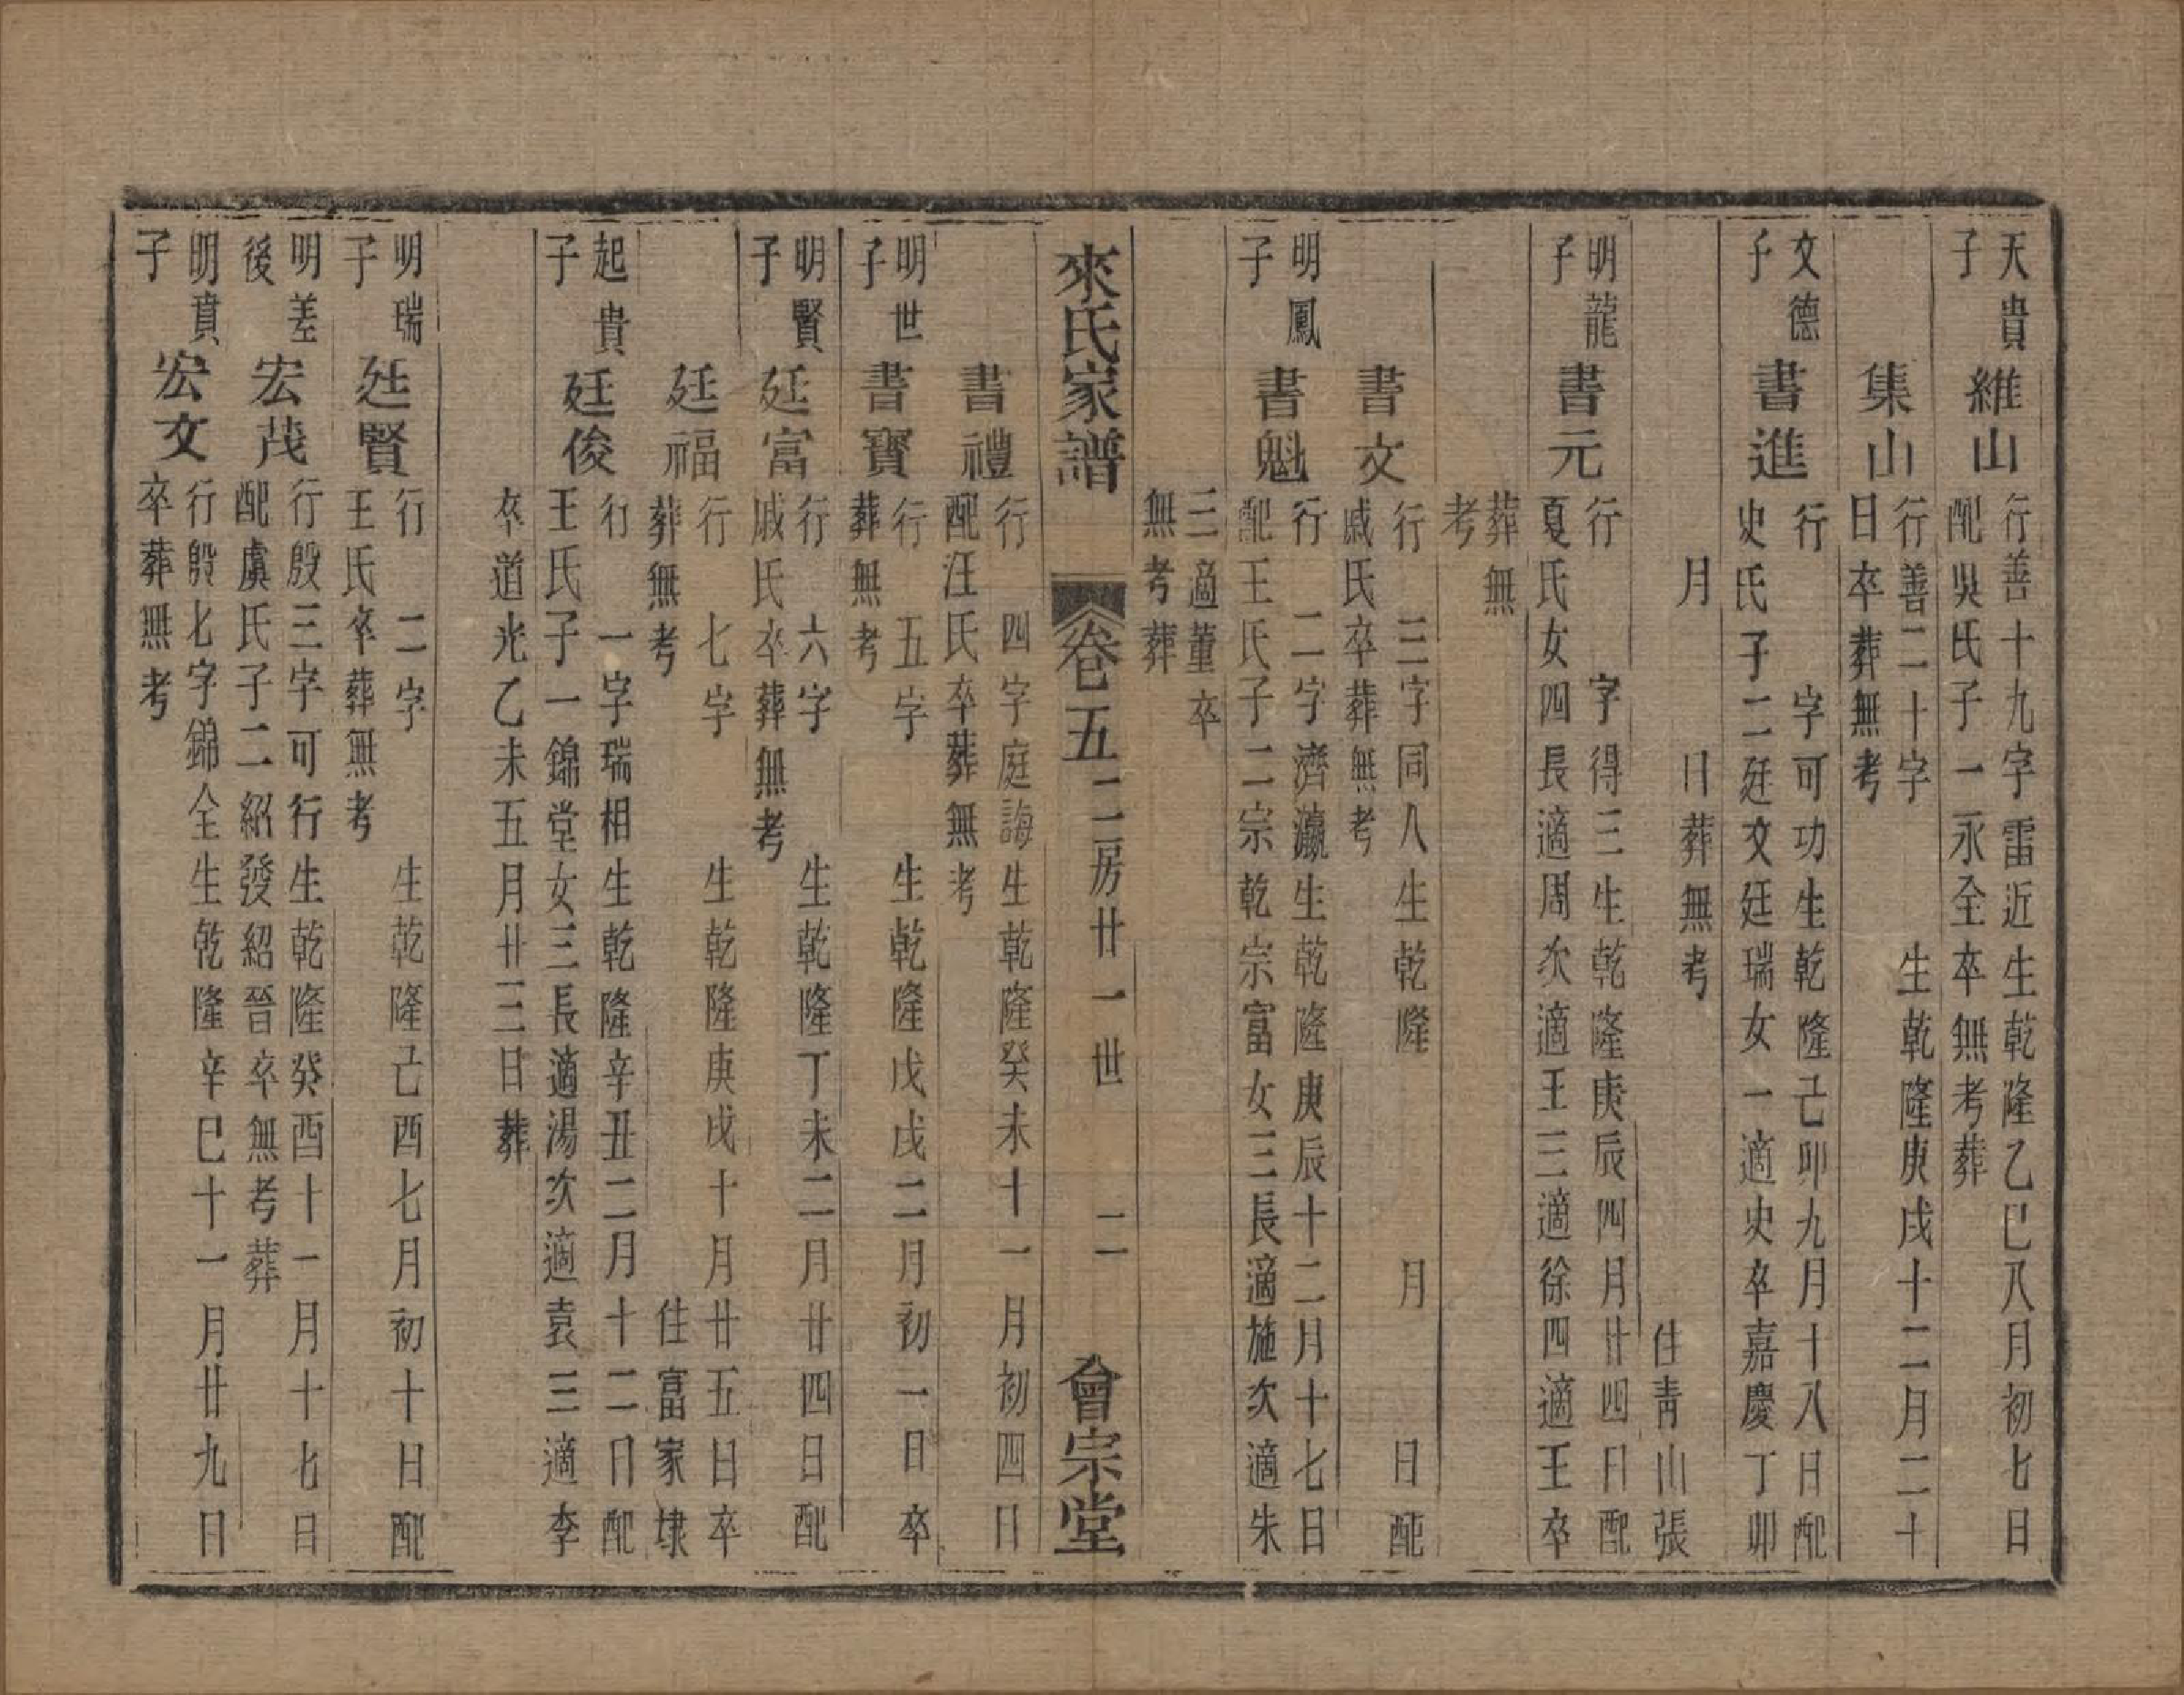 天貴子
維山
行善十九字雷近生乾隆乙巳八月初七日
配吳氏子一永全卒無考葬
集山
行善二十字　生乾隆庚戌十二月二十
日卒葬無考
文德子
書進
行　字可功生乾隆己卯九月十八日配
史氏子二廷文廷瑞女一適史卒嘉慶丁卯
月　日葬無考
住青山張
明龍子
書元
行　字得三生乾隆庚辰四月廿四日配
夏氏女四長適周次適王三適徐四適王卒
葬無
考
書文
行　三字同人生乾隆　月　日配
戚氏卒葬無考
明鳳子
書魁
行　二字濟瀛生乾隆庚辰十二月十七日
配王氏子二宗乾宗富女三長適施次適朱
三適董卒
無考葬
來氏家譜　卷五　二房廿一世　二　會宗堂
書禮
行　四字庭誨生乾隆癸未十一月初四日
配汪氏卒葬無考
明世子
書寶
行　五字　生乾隆戊戌二月初一日卒
葬無考
明賢子
廷富
行　六字　生乾隆丁未二月廿四日配
戚氏卒葬無考
廷福
行　七字　生乾隆庚戌十月廿五日卒
葬無考　住富家埭
起貴子
廷俊
行　一字瑞相生乾隆辛丑二月十二日配
王氏子一錦堂女三長適湯次適袁三適李
卒道光乙未五月廿三日葬
明瑞子
廷賢
行　二字　生乾隆己酉七月初十日配
王氏卒葬無考
明差後
宏茂
行殷三字可行生乾隆癸酉十一月十七日
配虞氏子二紹發紹晉卒無考葬
明賁子
宏文
行殷七字錦全生乾隆辛巳十一月廿九日
卒葬無考